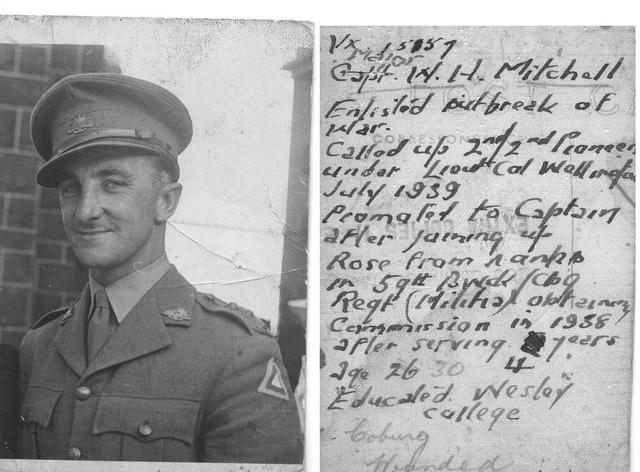 Vx 15157
Major
Capt. W. H. Mitchell
Enlisted outbreak of
war.
Called up 2nd/2nd Pioneer
under Lieut Col Wellington
July 1939
Promoted to Captain
after joining up
Rose from ranks
in 59th Bndk/Cbg
Regt (Militia) obtaining
Commission in 1938
after serving years
4
age 26 30
Educated. Wesley
College
Coburg
Wounded